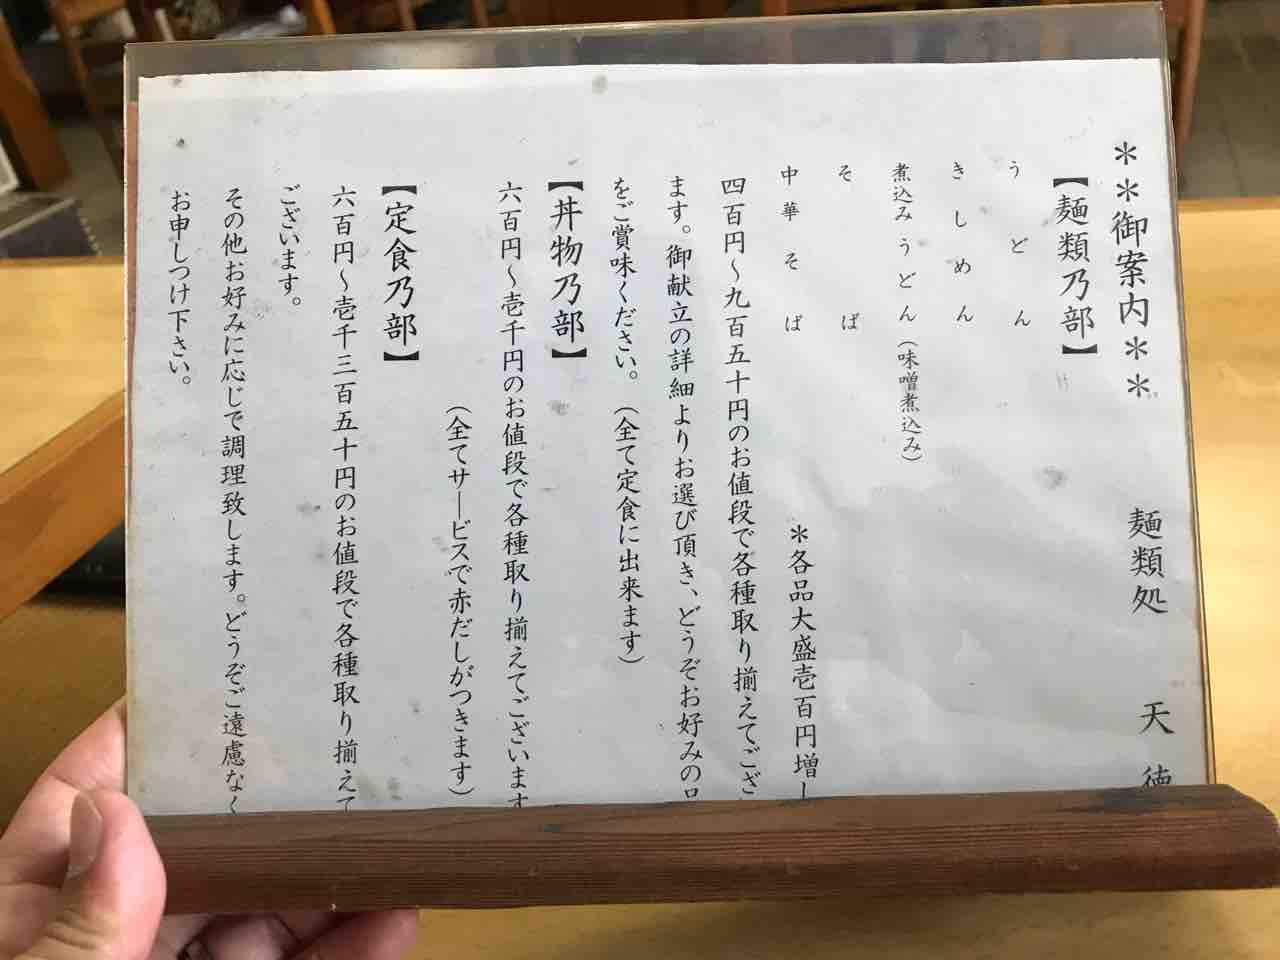 ＊＊御案内＊＊　麺類処　天徳
【麺類乃部】
うどん
きしめん
煮込みうどん（味噌煮込み）
そば
中華そば　＊各品大盛壱百円増し
四百円～九百五十円のお値段で各種取り揃えてござ
ます。御献立の詳細よりお選び頂き、どうぞお好みの
をご賞味ください。（全て定食に出来ます）
【丼物乃部】
六百円～壱千円のお値段で各種取り揃えてございます
（全てサービスで赤だしがつきます）
【定食乃部】
六百円～壱千三百五十円のお値段で各種取り揃えて
ございます。
その他お好みに応じで調理致します。どうぞご遠慮なく
お申しつけ下さい。